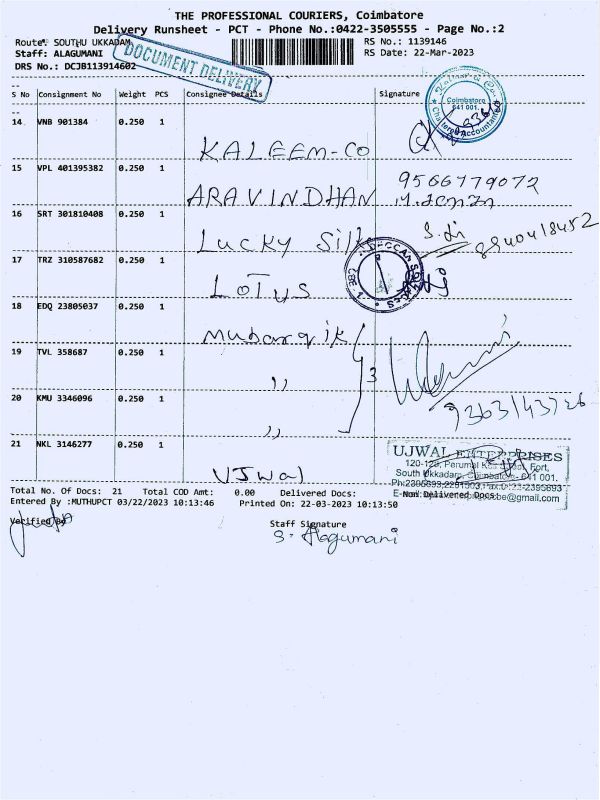 THE PROFESSIONAL COURIERS, Coimbatore
Delivery Runsheet - PCT - Phone No.:0422-3505555 - Page No.:2
Route: SOUTHU UKKADAM
RS No.: 1139146
Staff: ALAGUMANI
RS Date: 22-Mar-2023
DRS No.: DCJB113914602
DOCUMENT DELIVERY
S No Consignment No Weight PCS Consignee Details Signature
Coimbatore
641 001.
Chartered Accountants
14 VNB 901384 0.250 1
KALEEM-CO
15 VPL 401395382 0.250 1
ARAVINDHAN 9566779072
16 SRT 301810408 0.250 1
Lucky Silk
8940418452
17 TRZ 310587682 0.250 1
LOTUS
18 EDQ 23805037 0.250 1
Mubarqik
19 TVL 358687 0.250 1
,, 3
20 KMU 3346096 0.250 1
,, 9363143726
21 NKL 3146277 0.250 1
UJwal
UJWAL ENTERPRISES
South Ukkadam, Coimbatore- 641 001.
Total No. Of Docs: 21 Total COD Amt: 0.00 Delivered Docs: Non Delivered Docs:
Entered By :MUTHUPCT 03/22/2023 10:13:46 Printed On: 22-03-2023 10:13:50
Verified By
Staff Signature
S. Alagumani